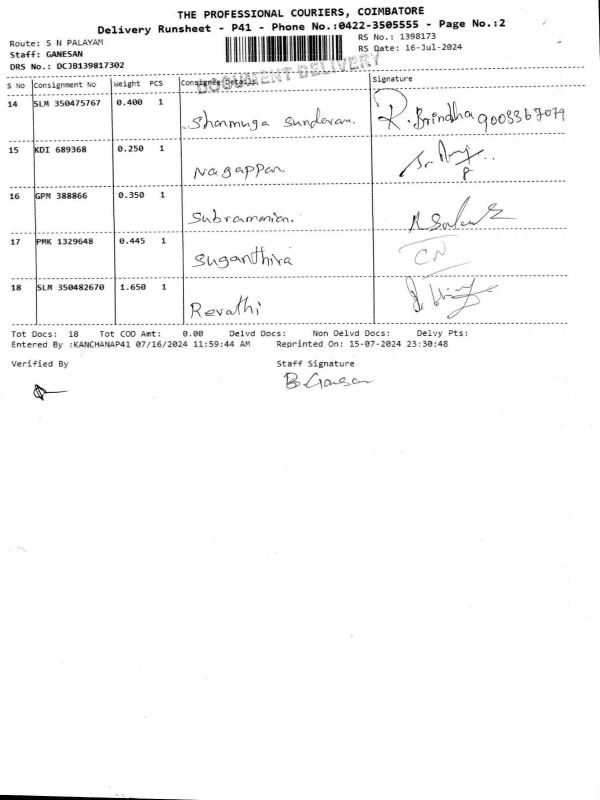 THE PROFESSIONAL COURIERS, COIMBATORE
Delivery Runsheet - P41 - Phone No.:0422-3505555 - Page No.:2
Route: S N PALAYAM RS No.: 1398173
Staff: GANESAN RS Date: 16-Jul-2024
DRS No.: DCJB139817302
DOCUMENT DELIVERY
S No Consignment No Weight PCS Consignee Details Signature
14 SLM 350475767 0.400 1 Shanmuga Sundaram. R. Brindha 9003367079
15 KDI 689368 0.250 1 Nagappan.
16 GPM 388866 0.350 1 Subramanian.
17 PMK 1329648 0.445 1 Suganthira CN
18 SLM 350482670 1.650 1 Revathi
Tot Docs: 18 Tot COD Amt: 0.00 Delvd Docs: Non Delvd Docs: Delvy Pts:
Entered By :KANCHANAP41 07/16/2024 11:59:44 AM Reprinted On: 15-07-2024 23:30:48
Verified By Staff Signature
B. Ganesan